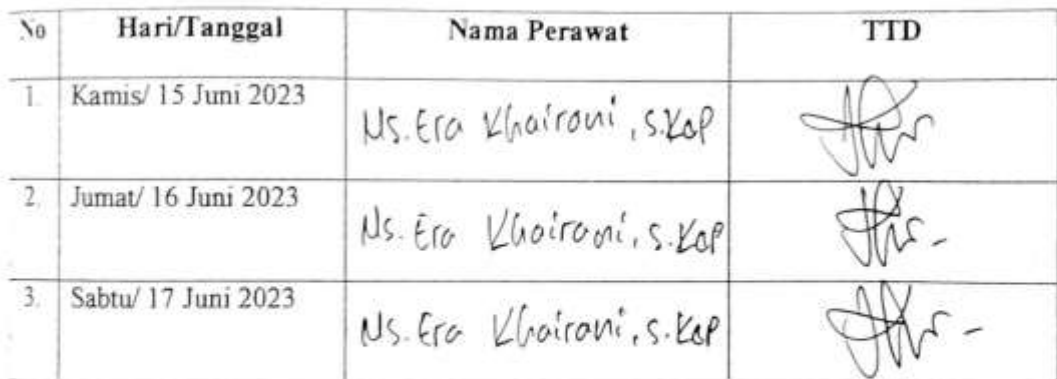 No Hari/Tanggal Nama Perawat TTD
1. Kamis/ 15 Juni 2023 Ns. Era Khairani, S.Kep
2. Jumat/ 16 Juni 2023 Ns. Era Khairani, S.Kep
3. Sabtu/ 17 Juni 2023 Ns. Era Khairani, S.Kep